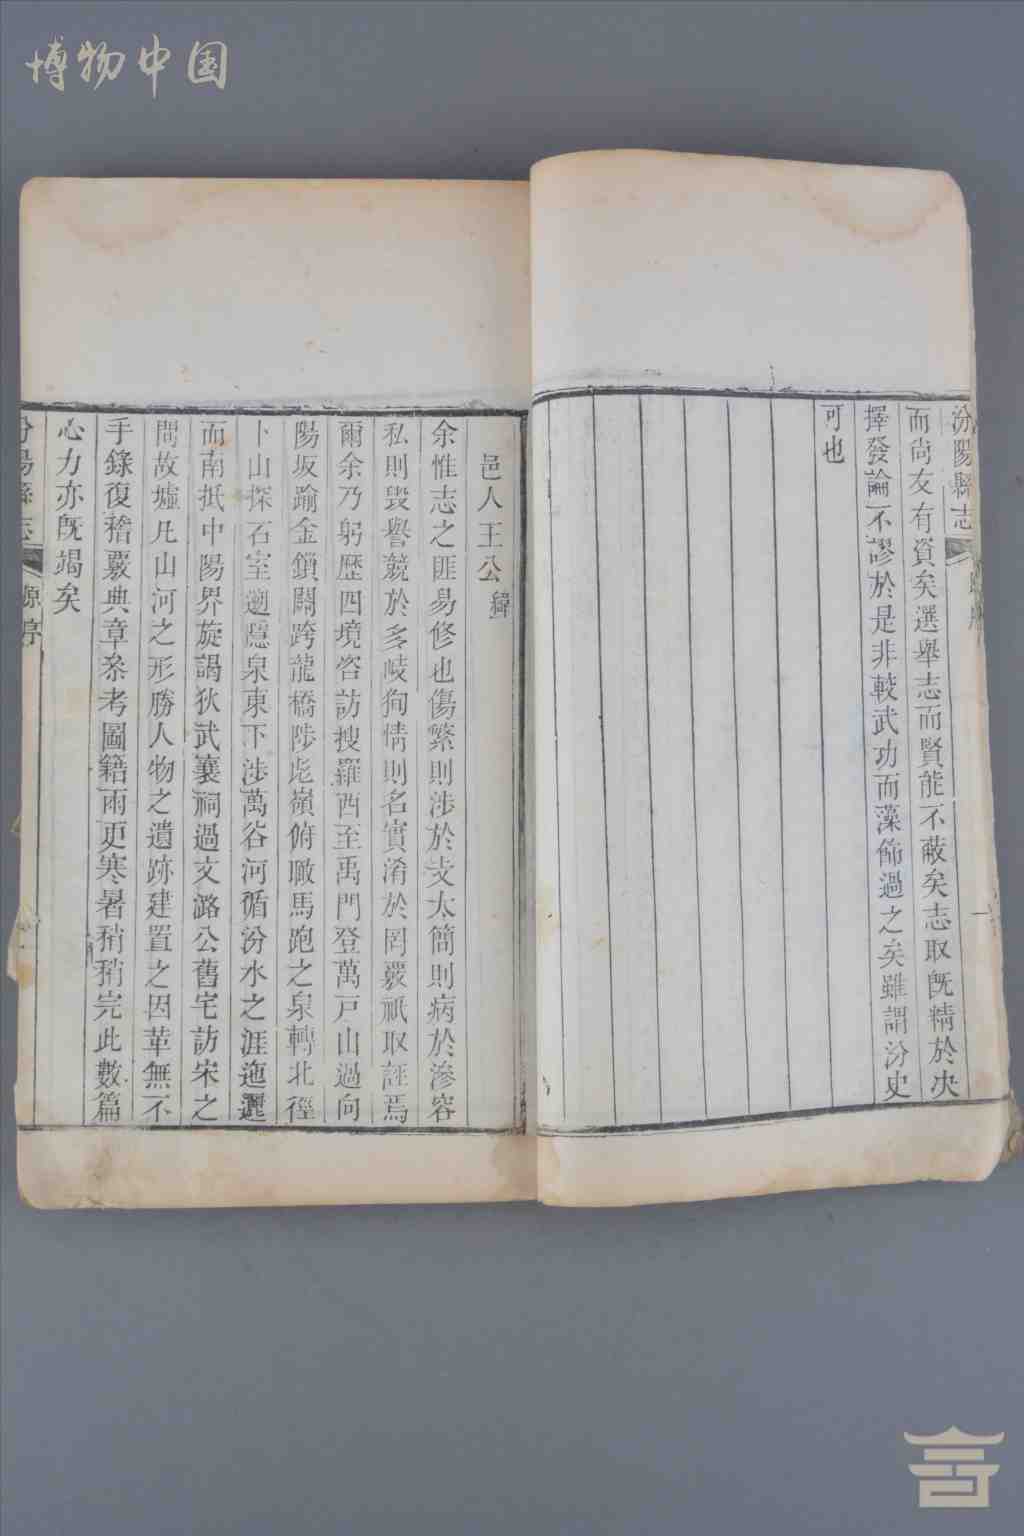 博物中国
汾陽縣志
而尚友有資矣選舉志而賢能不蔽矣志取既精於决
擇發論不謬於是非較武功而藻飾過之矣雖謂汾史
可也
邑人王公緯
余惟志之匪易修也傷繁則涉於支太簡則病於滲容
私則毀譽競於多岐徇情則名實淆於罔覈祇取誣焉
爾余乃躬歷四境咨訪搜羅西至禹門登萬戸山過向
陽坂踰金鎖關跨龍橋陟彪嶺俯瞰馬跑之泉轉北徑
卜山探石室遡隱泉東下涉萬谷河循汾水之涯迤邐
而南抵中陽界旋謁狄武襄祠過文潞公舊宅訪宋之
問故墟凡山河之形勝人物之遺跡建置之因革無不
手錄復稽覈典章叅考圖籍兩更寒暑稍稍完此數篇
心力亦既竭矣
汾陽縣志 原序